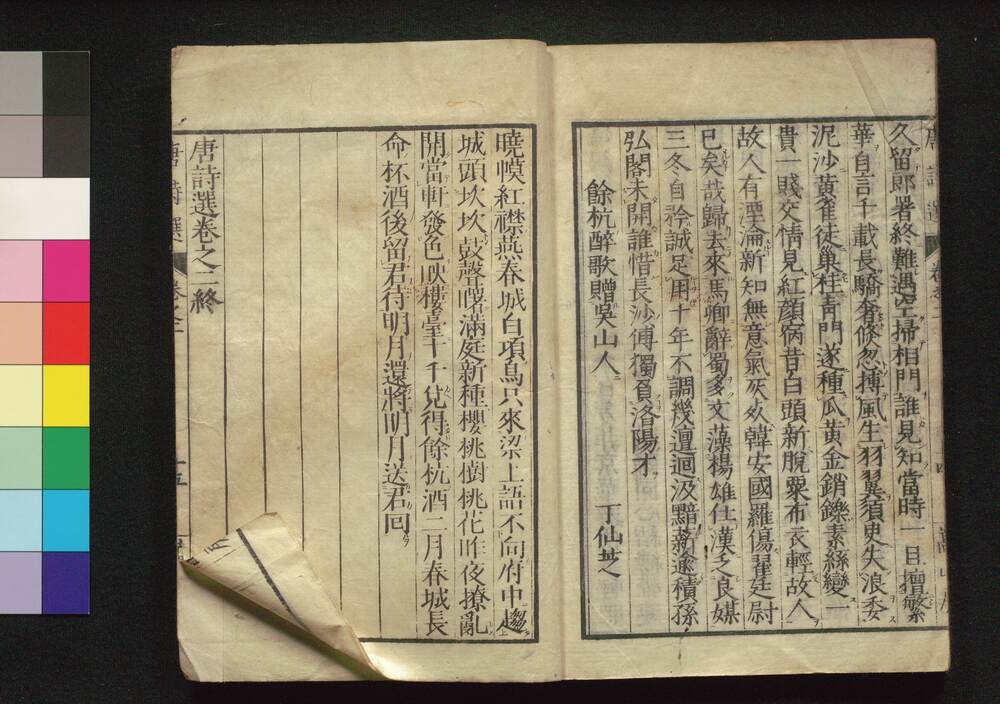 久留郎署終難遇空掃相門誰見知當時一旦擅繁
華自言千載長驕奢倐忽摶風生羽翼須臾失浪委
泥沙黄雀徒巢桂青門遂種瓜黄金銷鑠素絲變一
貴一賤交情見紅顔宿昔白頭新脱粟布衣輕故人
故人有湮淪新知無意氣灰灰韓安國羅傷翟廷尉
已矣哉歸去來馬卿辭蜀多文藻楊雄仕漢乏良媒
三冬自矜誠足用十年不調幾邅迴汲黯薪逾積孫
弘閣未開誰惜長沙傅獨負洛陽才
餘杭醉歌贈吳山人
丁仙芝
曉幙紅襟燕春城白項烏只來梁上語不向府中趨
城頭坎坎鼓聲曙滿庭新種櫻桃樹桃花昨夜撩亂
開當軒發色映樓臺十千兌得餘杭酒二月春城長
命杯酒後留君待明月還將明月送君囘
唐詩選卷之二終